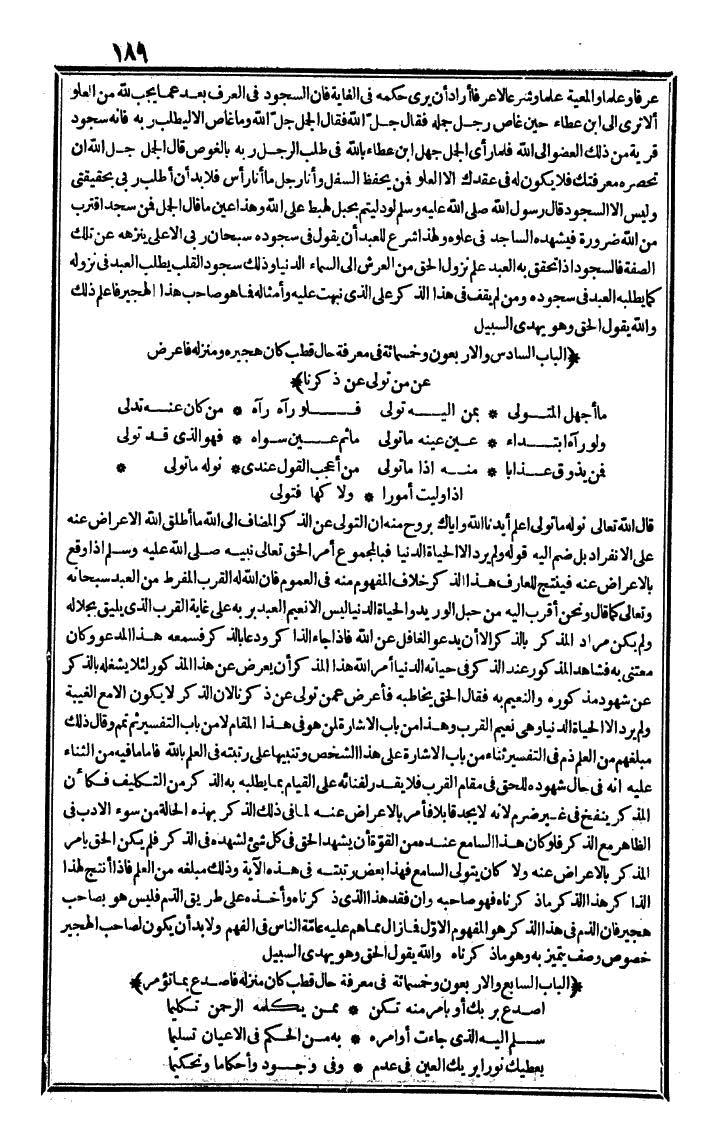 ١٨٩
عرفا وعلما والمعية علما وشرعا لا عرفا أراد أن يرى حكمه فى الغاية فان السجود فى العرف بعد عما يجب لله من العلو
ألا ترى الى ابن عطاء حين غاص رجل جمله فقال جل الله فقال الجمل جل الله وما غاص الا ليطلب ربه فانه سجود
قربة من ذلك العضو الى الله فلما رأى الجمل جهل ابن عطاء بالله فى طلب الرجل ربه بالغوص قال الجمل جل الله ان
تحصره معرفتك فلا يكون له فى عقدك الا العلو فمن يحفظ السفل وأنا رجل ما أنا رأس فلا بد أن أطلب ربى بحقيقتى
وليس الا السجود قال رسول الله صلى الله عليه وسلم لو دليتم بحبل لهبط على الله وهذا عين ما قال الجمل فمن سجد اقترب
من الله ضرورة فيشهده الساجد فى علوه ولهذا شرع للعبد أن يقول فى سجوده سبحان ربى الاعلى ينزهه عن تلك
الصفة فالسجود اذا تحقق به العبد علم نزول الحق من العرش الى السماء الدنيا وذلك سجود القلب يطلب العبد فى نزوله
كما يطلبه العبد فى سجوده ومن لم يقف فى هذا الذكر على الذى نبهت عليه وأمثاله فما هو صاحب هذا الهجير فاعلم ذلك
والله يقول الحق وهو يهدى السبيل
﴿الباب السادس والاربعون وخمسمائة فى معرفة حال قطب كان هجيره ومنزله فاعرض
عن من تولى عن ذكرنا﴾
ما أجهل المتولى * بمن اليه تولى فلو رآه رآه * من كان عنه تدلى
ولو رآه ابتداء * عين عينه ما تولى ما ثم عين سواه * فهو الذى قد تولى
فمن يذوق عذابا * منه اذا ما تولى من أعجب القول عندى * نوله ما تولى *
اذا وليت أمورا * ولا كها فتولى
قال الله تعالى نوله ما تولى اعلم أيدنا الله واياك بروح منه ان التولى عن الذكر المضاف الى الله ما أطلق الله الاعراض عنه
على الانفراد بل ضم اليه قوله ولم يرد الا الحياة الدنيا فبالمجموع أمر الحق تعالى نبيه صلى الله عليه وسلم اذا وقع
بالاعراض عنه فينتج للعارف هذا الذكر خلاف المفهوم منه فى العموم فان الله له القرب المفرط من العبد سبحانه
وتعالى كما قال ونحن أقرب اليه من حبل الوريد والحياة الدنيا ليس الا نعيم العبد بربه على غاية القرب الذى يليق بجلاله
ولم يكن مراد المذكر بالذكر الا أن يدعو الغافل عن الله فاذا جاء الذاكر ودعا بالذكر فسمعه هذا المدعو وكان
معتنى به فشاهد المذكور عند الذكر فى حياته الدنيا أمر الله هذا المذكر أن يعرض عن هذا المذكور لئلا يشغله بالذكر
عن شهود مذكوره والنعيم به فقال الحق يخاطبه فأعرض عمن تولى عن ذكرنا لان الذكر لا يكون الا مع الغيبة
ولم يرد الا الحياة الدنيا وهى نعيم القرب وهذا من باب الاشارة لمن هو فى هذا المقام لا من باب التفسير ثم تمم وقال ذلك
مبلغهم من العلم ذم فى التفسير ثناء من باب الاشارة على هذا الشخص وتنبيها على رتبته فى العلم بالله فاما ما فيه من الثناء
عليه انه فى حال شهوده للحق فى مقام القرب فلا يقدر لفنائه على القيام بما يطلبه به الذكر من التكليف فكأن
المذكر ينفخ فى غير ضرم لانه لا يجد قابلا فأمر بالاعراض عنه لما فى ذلك الذكر بهذه الحالة من سوء الادب فى
الظاهر مع الذكر فلو كان هذا السامع عنده من القوة أن يشهد الحق فى كل شئ لشهده فى الذكر فلم يكن الحق يامر
المذكر بالاعراض عنه ولا كان يتولى السامع فهذا بعض رتبته فى هذه الآية وذلك مبلغه من العلم فاذا أنتج لهذا
الذاكر هذا الذكر ما ذكرناه فهو صاحبه وان فقد هذا الذى ذكرناه وأخذه على طريق الذم فليس هو بصاحب
هجير فان الذم فى هذا الذكر هو المفهوم الاول فما زال مما هم عليه عامّة الناس فى الفهم ولا بد أن يكون لصاحب الهجير
خصوص وصف يتميز به وهو ما ذكرناه والله يقول الحق وهو يهدى السبيل
﴿الباب السابع والاربعون وخمسمائة فى معرفة حال قطب كان منزله فاصدع بما تؤمر﴾
اصدع بربك أو بامر منه تكن * ممن يكلمه الرحمن تكليما
سلم اليه الذى جاءت أوامره * به من الحكم فى الاعيان تسليما
يعطيك نورا يريك العين فى عدم * وفى وجود وأحكاما وتحكيما